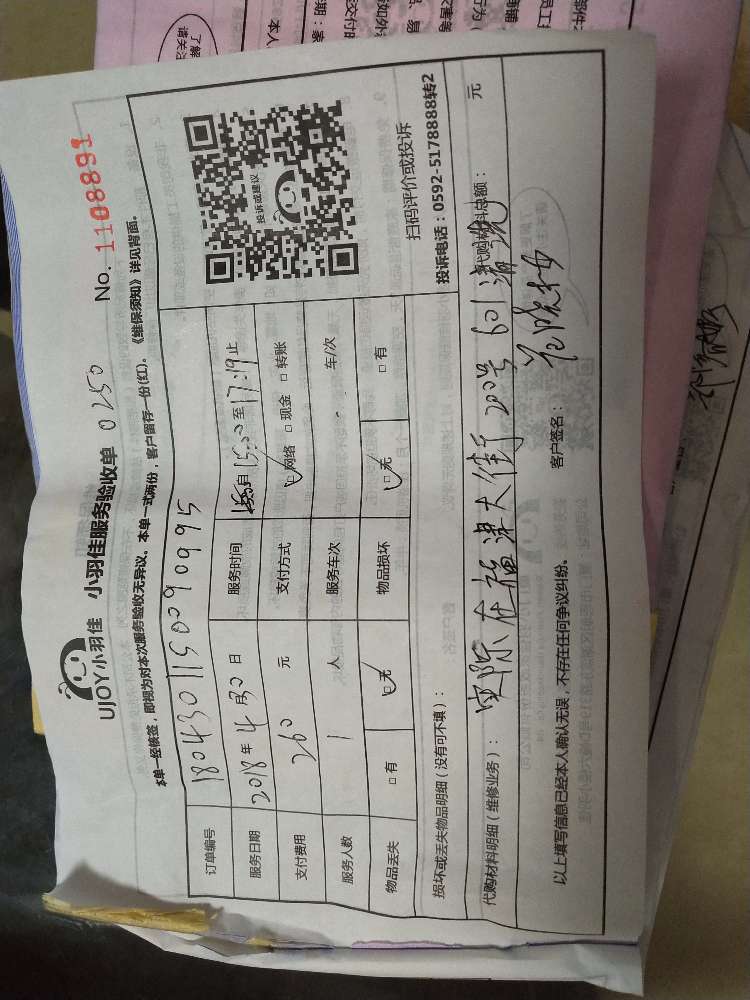 UJOY小羽佳 小羽佳服务验收单 0250 No. 1108891
本单一经核签，即视为对本次服务验收无异议。本单一式两份，客户留存一份(红)。《维保须知》详见背面。
订单编号 1804301150090995
服务日期 2018年4月30日 服务时间 自15:00至17:19止
支付费用 260元 支付方式 网络 □现金 □转账
服务人数 1人 服务车次 车/次
物品丢失 □有 无 物品损坏 无 □有
投诉或建议
扫码评价或投诉
投诉电话：0592-5178888转2
损坏或丢失物品明细（没有可不填）：
代购材料明细（维修业务）： 实际在 大街200号601清洗 代购材料总额： 元
以上填写信息已经本人确认无误，不存在任何争议纠纷。 客户签名：
了解
请关注